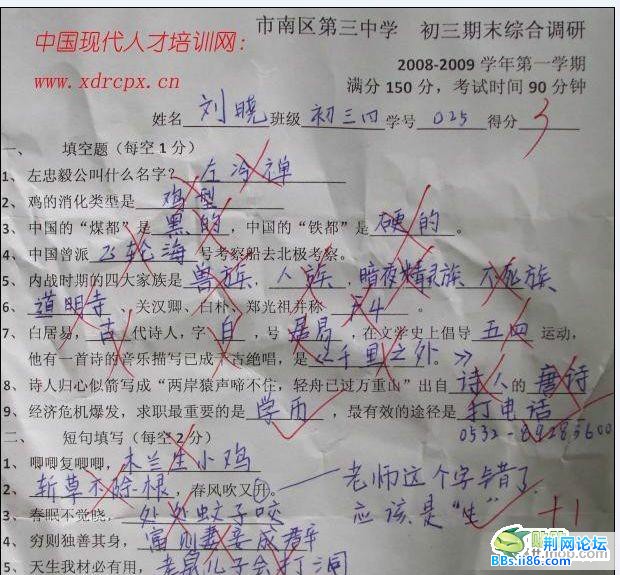 市南区第三中学 初三期末综合调研
中国现代人才培训网：
www.xdrcpx.cn
2008-2009 学年第一学期
满分 150 分，考试时间 90 分钟
姓名 刘晓 班级 初三四 学号 025 得分 3
一、 填空题（每空 1 分）
1、左忠毅公叫什么名字？ 左冷禅
2、鸡的消化类型是 鸡型
3、中国的“煤都”是 黑的 ，中国的“铁都”是 硬的 。
4、中国曾派 飞轮海 号考察船去北极考察。
5、内战时期的四大家族是 兽族 ， 人族 ， 暗夜精灵族 不死族
6、 道明寺 、关汉卿、白朴、郑光祖并称 F4 。
7、白居易， 古 代诗人，字 白 ，号 居易 ，在文学史上倡导 五四 运动，
他有一首诗的音乐描写已成千古绝唱，是 《千里之外。》
8、诗人归心似箭写成“两岸猿声啼不住，轻舟已过万重山”出自 诗人 的 唐诗
9、经济危机爆发，求职最重要的是 学历 ，最有效的途径是 打电话
0532-89283600
二、 短句填写（每空 2 分）
1、唧唧复唧唧， 木兰生小鸡
2、 斩草不除根 ，春风吹又升。 老师这个字错了，
应该是“生” +1
3、春眠不觉晓， 处处蚊子咬
4、穷则独善其身， 富则妻妾成群
5、天生我材必有用， 老鼠儿子会打洞
荆网论坛
BBS.ii86.com